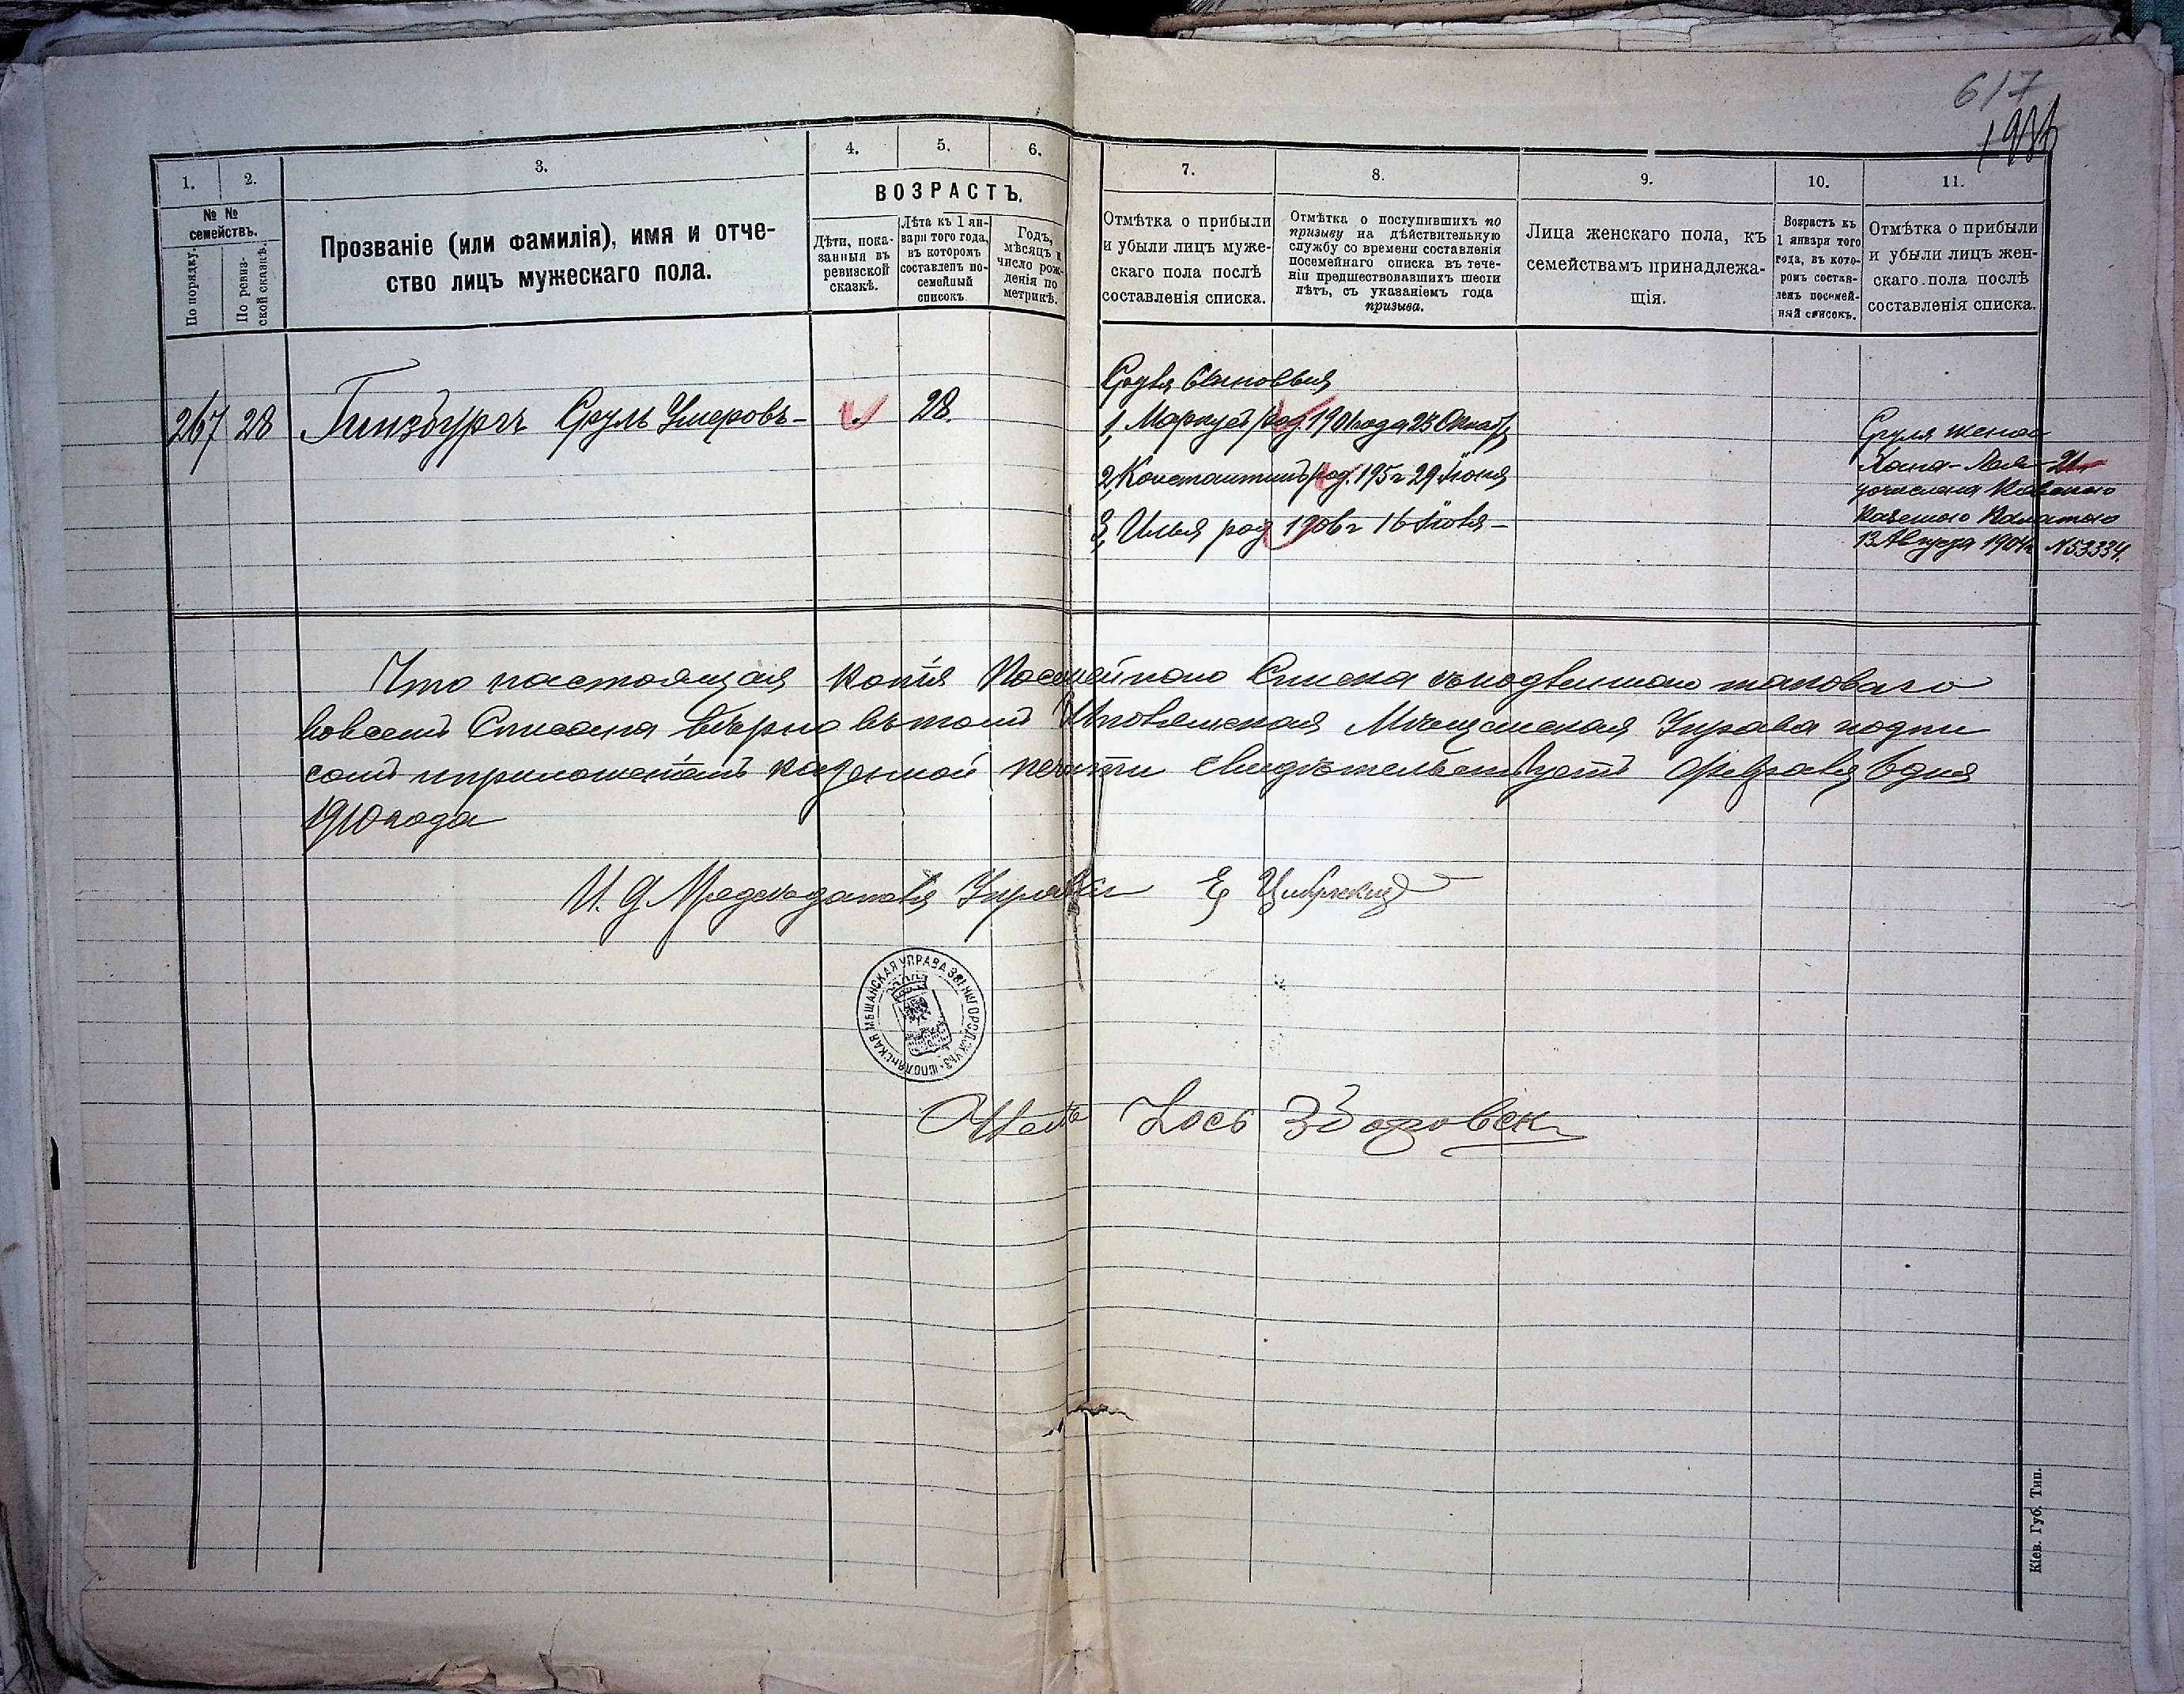 617
1. 2. 3. 4. 5. 6. 7. 8. 9. 10. 11.
№ №
семействъ.
По порядку.
По ревиз-
ской сказкѣ.
Прозваніе (или фамилія), имя и отче-
ство лицъ мужескаго пола.
ВОЗРАСТЪ.
Дѣти, пока-
занныя въ
ревизской
сказкѣ.
Лѣта къ 1 ян-
варя того года,
въ которомъ
составленъ по-
семейный
списокъ.
Годъ,
мѣсяцъ и
число рож-
денія по
метрикѣ.
Отмѣтка о прибыли
и убыли лицъ муже-
скаго пола послѣ
составленія списка.
Отмѣтка о поступившихъ по
призыву на дѣйствительную
службу со времени составленія
посемейнаго списка въ тече-
ніи предшествовавшихъ шести
лѣтъ, съ указаніемъ года
призыва.
Лица женскаго пола, къ
семействамъ принадлежа-
щія.
Возрастъ къ
1 января того
года, въ кото-
ромъ состав-
ленъ посемей-
ный списокъ.
Отмѣтка о прибыли
и убыли лицъ жен-
скаго пола послѣ
составленія списка.
267 28 Гинзбургъ Сруль Умеровъ- 28.
Сруля Сыновья
1, Маркус род. 1901 года 23 Октяб.
2, Константинъ род. 195 г 29 Июня
3, Илья род 1906 г 16 Июля-
Сруля жена
Хана-Лея-21,
причислена Кіевскою
Казенною Палатою
13 Августа 1904 г. N53334.
Что настоящая копія Посемейнаго Списка съ подлиннаго таковаго
во всемъ Списана вѣрно въ томъ Шполянская Мѣщанская Управа подпи
сомъ и приложеніемъ казенной печати свидѣтельствуетъ Февраля 6 дня
1910 года
И. д. Предсѣдателя Управы
ШПОЛЯНСКАЯ МѢЩАНСКАЯ УПРАВА ЗВЕНИГОРОДСК. УѢЗ.
Кіев. Губ. Тип.